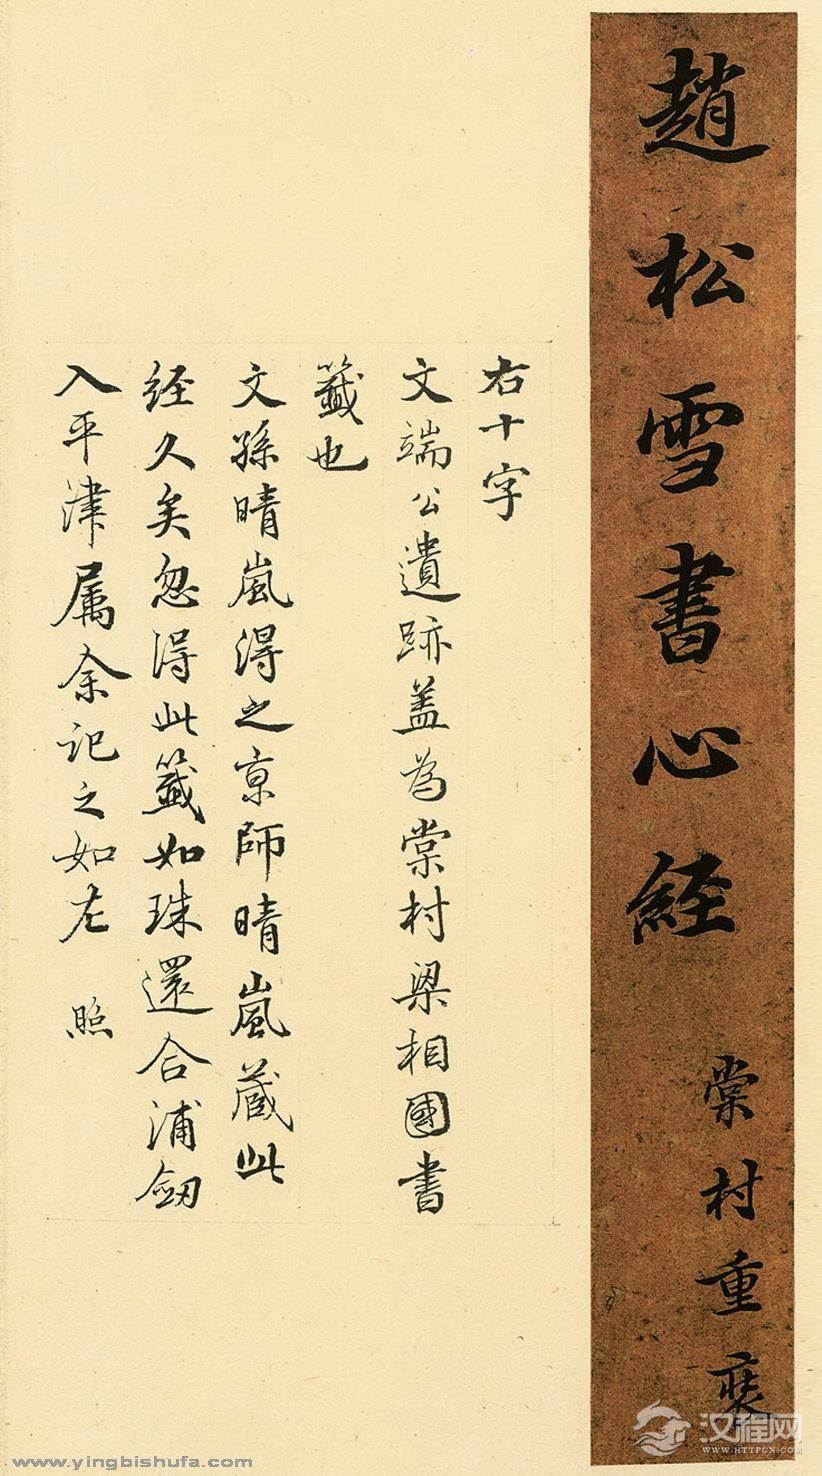 趙松雪書心經
棠村重裝
右十字
文端公遺跡蓋為棠村梁相國書
籤也
文孫晴嵐得之京師晴嵐藏此
经久矣忽得此籤如珠還合浦劒
入平津属余记之如左 照
www.yingbishufa.com
汉程网
WWW.HTTPCN.COM